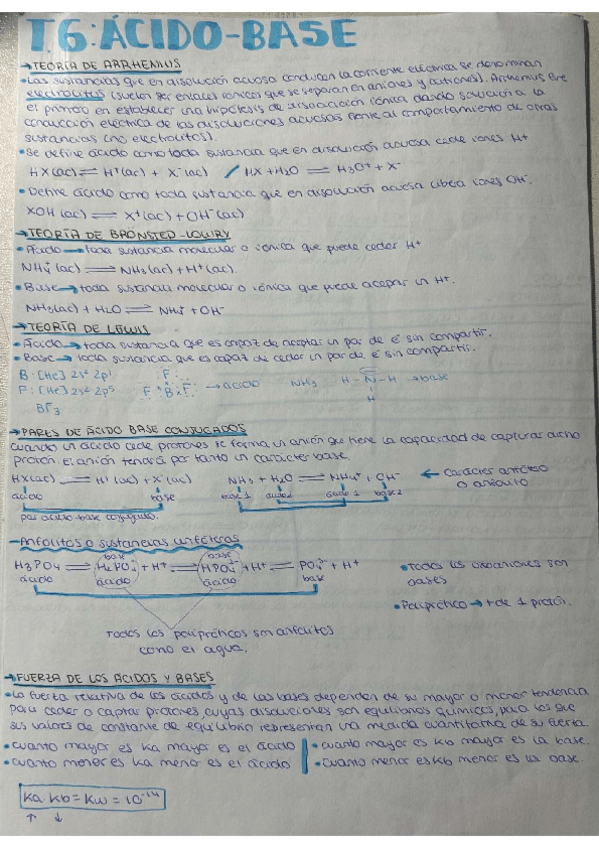 T.6: ÁCIDO-BASE
→TEORÍA DE ARRHENIUS
•Las sustancias que en disolución acuosa conducen la corriente eléctrica se denominan
electrolitos (suelen ser enlaces iónicos que se separan en aniones y cationes). Arrhenius fue
el primero en establecer una hipótesis de disociación iónica dando solución a la
conducción eléctrica de las disoluciones acuosas frente al comportamiento de otras
sustancias (no electrolitos).
•Se define ácido como toda sustancia que en disolución acuosa cede iones H+
HX(ac) ⇌ H+(ac) + X-(ac) / HX + H2O ⇌ H3O+ + X-
•Define ácido como toda sustancia que en disolución acuosa libera iones OH-.
XOH (ac) ⇌ X+(ac) + OH-(ac)
→TEORÍA DE BRÖNSTED-LOWRY
•Ácido→toda sustancia molecular o iónica que puede ceder H+
NH4+ (ac) ⇌ NH3(ac) + H+(ac).
•Base→toda sustancia molecular o iónica que puede aceptar un H+.
NH3(ac) + H2O ⇌ NH4+ + OH-
→TEORÍA DE LEWIS
•Ácido→toda sustancia que es capaz de aceptar un par de e- sin compartir.
•Base→toda sustancia que es capaz de ceder un par de e- sin compartir.
B: [He] 2s2 2p1 :F:
F: [He] 2s2 2p5 F:B:F: →ácido NH3 H-N-H →base
H
BF3
→PARES DE ÁCIDO BASE CONJUGADOS
Cuando un ácido cede protones se forma un anión que tiene la capacidad de capturar dicho
protón. El anión tendrá por tanto un carácter base.
HX(ac) ⇌ H+(ac) + X-(ac) NH3 + H2O ⇌ NH4+ + OH- ← Carácter anfótero
ácido base base 1 ácido 2 ácido 1 base 2 o anfolito
par ácido-base conjugado.
-Anfolitos o sustancias anfóteras
base base
H3PO4 ⇌ H2PO4- + H+ ⇌ HPO4 2- + H+ ⇌ PO4 3- + H+ •Todos los
ácido ácido ácido base son bases
•Poliprótico→+ de 1 protón.
Todos los polipróticos son anfolitos
como el agua.
→FUERZA DE LOS ACIDOS Y BASES
•La fuerza relativa de los ácidos y de las bases dependen de su mayor o menor tendencia
para ceder o captar protones, cuyas disoluciones son equilibrios químicos, para los que
sus valores de constante de equilibrio representan una medida cuantitativa de su fuerza.
•cuanto mayor es Ka mayor es el ácido •cuanto mayor es Kb mayor es la base.
•cuanto menor es Ka menor es el ácido •Cuanto menor es Kb menor es la base.
Ka Kb = Kw = 10-14
↑ ↓